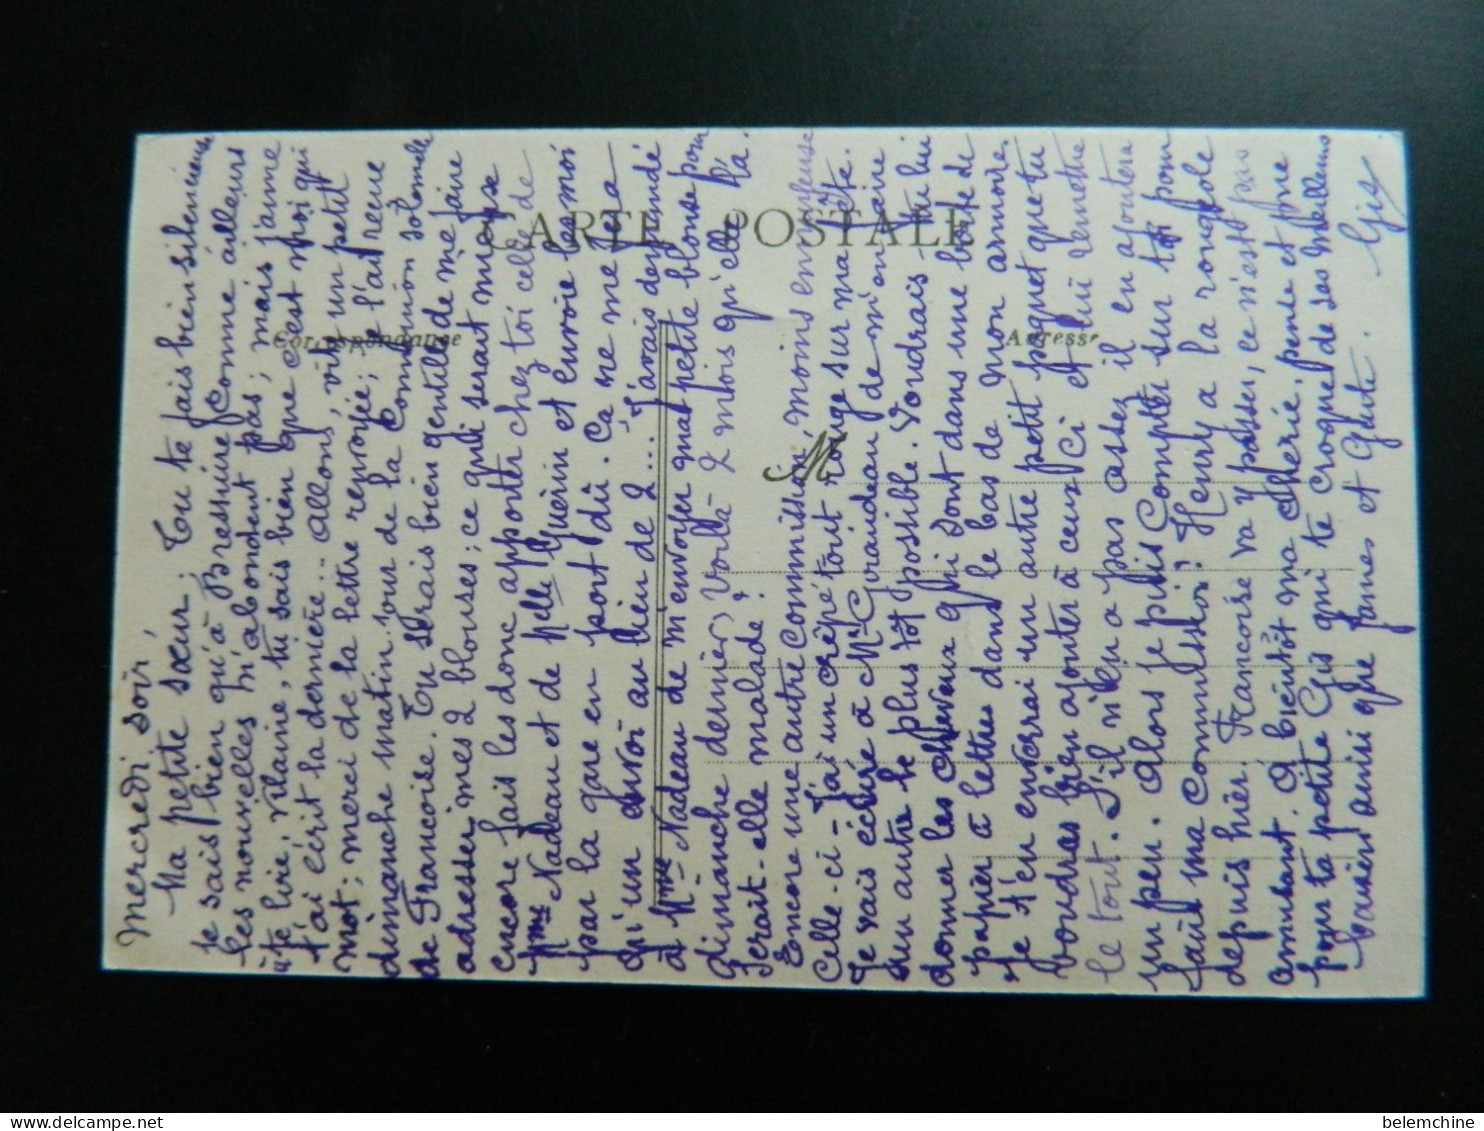 Mercredi soir,
Ma petite sœur. Tu te fais bien silencieuse
je sais bien qu'à Bressuire comme ailleurs
les nouvelles n'abondent pas ; mais j'aime
te lire, vilaine, tu sais bien que c'est moi qui
t'ai écrit la dernière... allons, vite un petit
mot ; merci de la lettre renvoyée ; je l'ai reçue
dimanche matin, jour de la Communion solennelle
de Françoise. Tu serais bien gentille de me faire
adresser mes 2 blouses ; ce qui serait mieux
encore fais les donc apporter chez toi celle de
Mme Nadeau et de Melle Guérin et envoie les moi
par la gare en port dû. Ca ne me fera
qu'un envoi au lieu de 2... J'avais demandé
à Mme Nadeau de m'envoyer ma petite blouse pour
dimanche dernier, voilà 2 mois qu'elle l'a.
Serait-elle malade ?
Encore une autre commission, moins ennuyeuse
celle-ci - J'ai un crêpé tout rouge sur ma tête.
Je vais écrire à Mr Giraudeau de m'en faire
un autre le plus tôt possible. Voudrais-tu lui
donner les cheveux qui sont dans une boîte de
papier à lettres dans le bas de mon armoire.
Je t'en enverrai un autre petit paquet que tu
voudras bien ajouter à ceux ci et lui remettre
le tout. S'il n'en a pas assez il en ajoutera
un peu. Alors je puis compter sur toi pour
faire ma commission ? Henry a la rougeole
depuis hier. Françoise va y passer, ce n'est pas
amusant. A bientôt ma chérie, pense et prie
pour ta petite Gis qui te croque de ses meilleurs
baisers ainsi que James et Glute.
Gis
CARTE POSTALE
Correspondance
Adresse
M
delcampe.net
belemchine